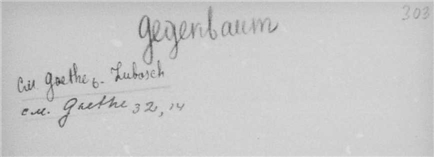 303
Gegenbaum
см. Goethe 6. Lubosch
см. Goethe 32, 14